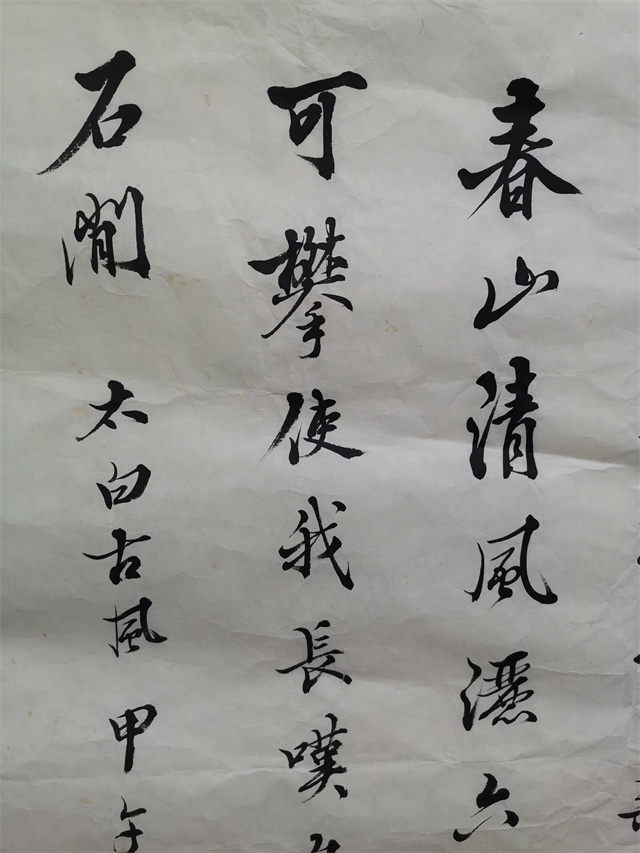 春山清風灑六
可攀使我長嘆
石閒
太白古風 甲午